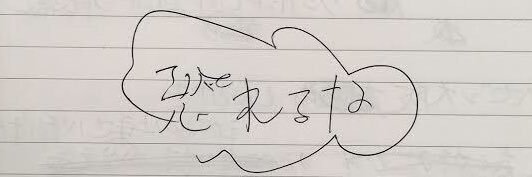 恐れるな